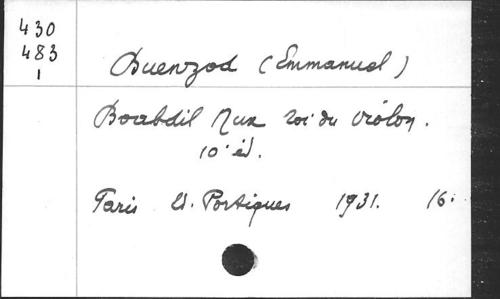 430
483
1
Buenzod (Emmanuel)
Boabdil Nux roi du violon.
10ᵉ éd.
Paris Ed. Portiques 1931. 16.